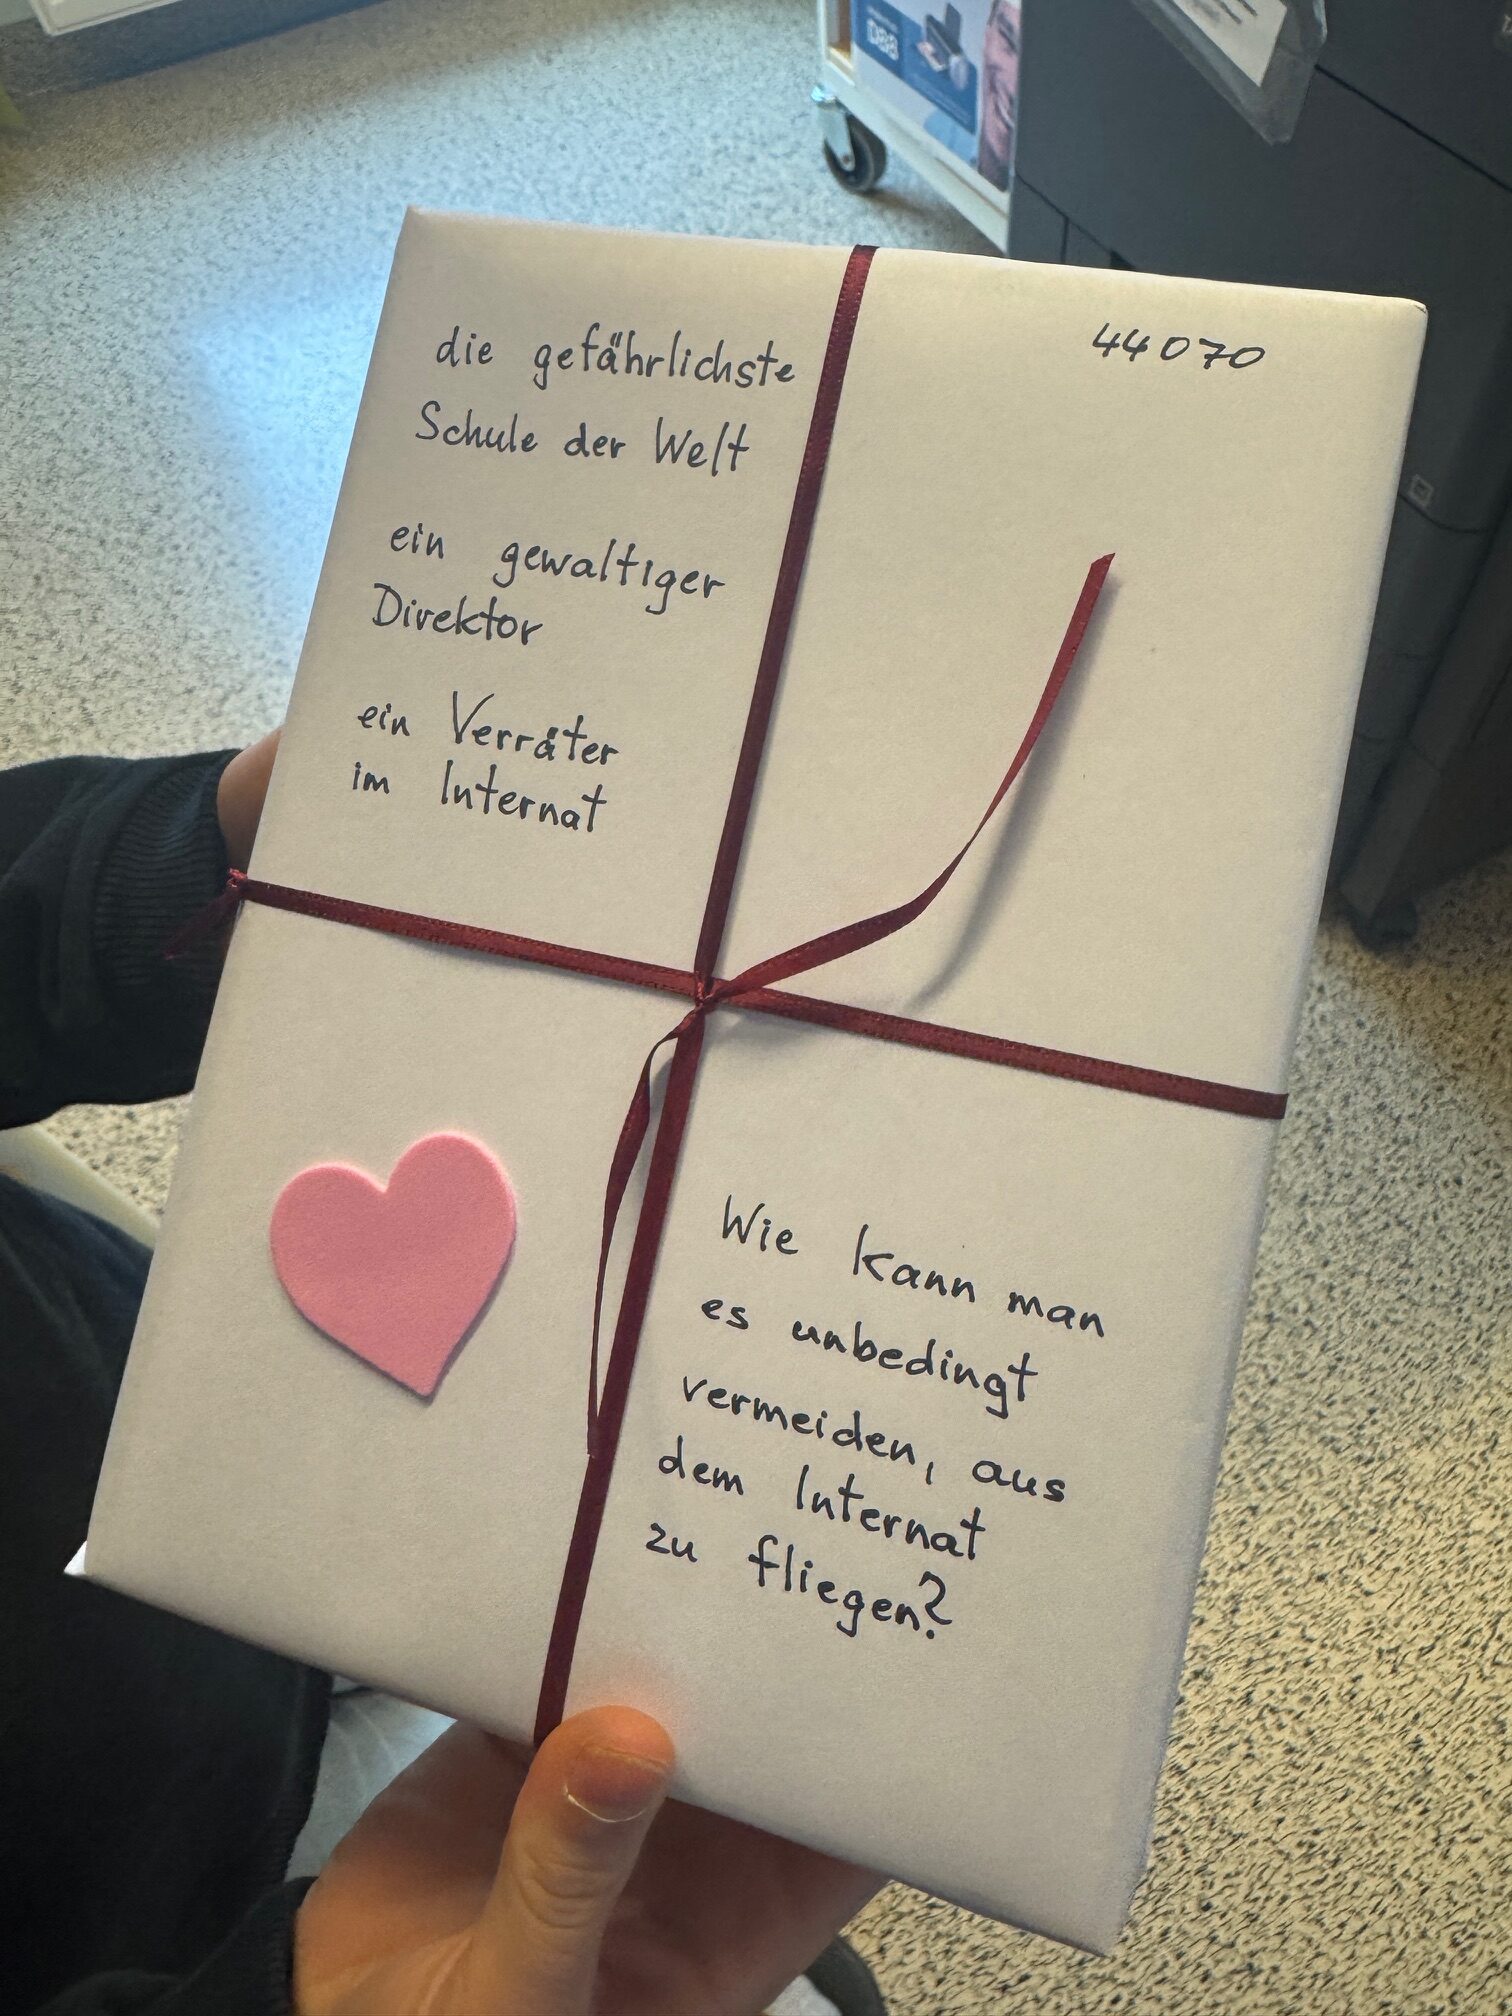 die gefährlichste
Schule der Welt
ein gewaltiger
Direktor
ein Verräter
im Internat
44070
Wie kann man
es unbedingt
vermeiden, aus
dem Internat
zu fliegen?